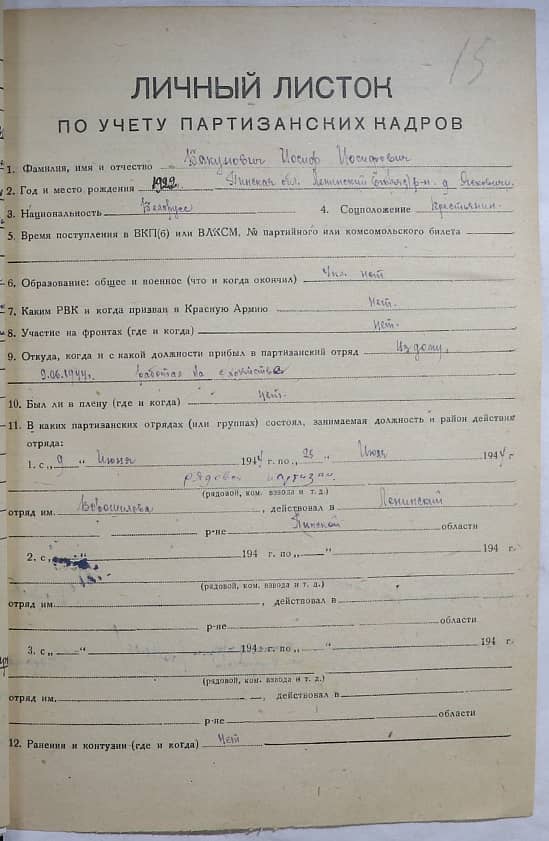 15
ЛИЧНЫЙ ЛИСТОК
ПО УЧЕТУ ПАРТИЗАНСКИХ КАДРОВ
1. Фамилия, имя и отчество Бакунович Иосиф Иосифович
2. Год и место рождения 1922 Пинская обл. Ленинский р-н. д.
3. Национальность Белорус 4. Соцположение Крестьянин
5. Время поступления в ВКП(б) или ВЛКСМ, № партийного или комсомольского билета
6. Образование: общее и военное (что и когда окончил) нет
7. Каким РВК и когда призван в Красную Армию нет.
8. Участие на фронтах (где и когда) нет.
9. Откуда, когда и с какой должности прибыл в партизанский отряд Из дому,
9.06.1944г. работал на с хозяйстве
10. Был ли в плену (где и когда) нет.
11. В каких партизанских отрядах (или группах) состоял, занимаемая должность и район действия
отряда:
1. с „9“ Июня 1944 г. по „25“ Июля 1944 г
рядовой партизан.
(рядовой, ком. взвода и т. д.)
отряд им. Ворошилова, действовал в Ленинский
р-не Пинской области
2. с „ “ 194 г. по „ “ 194 г
(рядовой, ком. взвода и т. д.)
отряд им. , действовал в
р-не области
3. с „ “ 194 г. по „ “ 194 г.
(рядовой, ком. взвода и т. д.)
отряд им. , действовал в
р-не области
12. Ранения и контузии (где и когда) нет